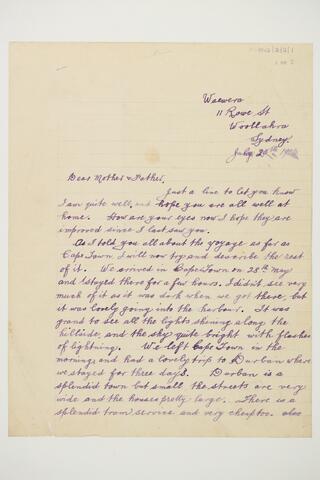 Waewera
11 Rowe St
Woollahra
Sydney.
July 2
Dear Mother & Father,
Just a line to let you know
I am quite well, and hope you are all well at
home. How are your eyes now I hope they are
improved since I last saw you.
As I told you all about the voyage as far as
Cape Town I will now try and describe the rest
of it. We arrived in Cape Town on 28th May
and stayed there for a few hours. I didn't see very
much of it as it was dark when we got there, but
it was lovely going into the harbour. It was
grand to see all the lights shining along the
hillside, and the sky quite bright with flashes
of lightning. We left Cape Town in the
morning and had a lovely trip to Durban where
we stayed for three days. Durban is a
splendid town but small the streets are very
wide and the houses pretty large. There is a
splendid tram service and very cheap too. also